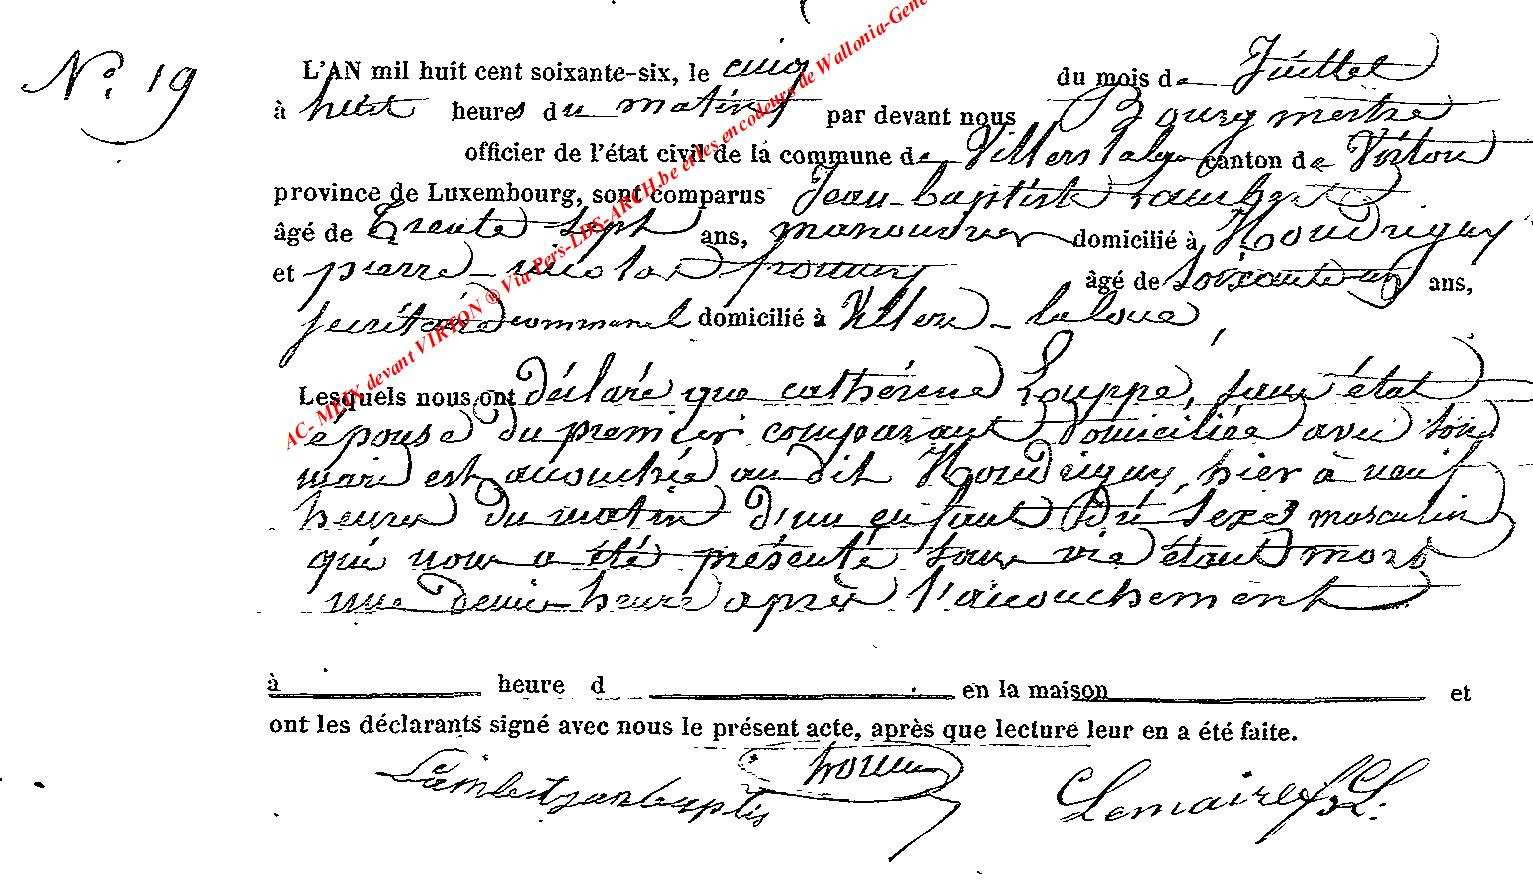 N° 19
L'AN mil huit cent soixante-six, le cinq du mois de Juillet
à huit heures du matin par devant nous Bourgmestre
officier de l'état civil de la commune de Villers laloue canton de Virton
province de Luxembourg, sont comparus Jean-baptiste Lambert
âgé de trente-sept ans, manouvrier domicilié à Houdrigny
et pierre-nicolas âgé de soixante un ans,
secrétaire communal domicilié à Villers-laloue,
Lesquels nous ont déclaré que cathérine Louppe, sans état
épouse du premier comparant domiciliée avec son
mari est acouchée au dit Houdrigny, hier à neuf
heures du matin d'un enfant du sexe masculin
qui nous a été présenté sans vie étant mort
une demie-heure après l'acouchement
à heure d en la maison et
ont les déclarants signé avec nous le présent acte, après que lecture leur en a été faite.
Lambert jean baptis Lemaire
AC- MEIX devant VIRTON ® Via Pers-LDS-ARCH.be et les encodeurs de Wallonia-Gene